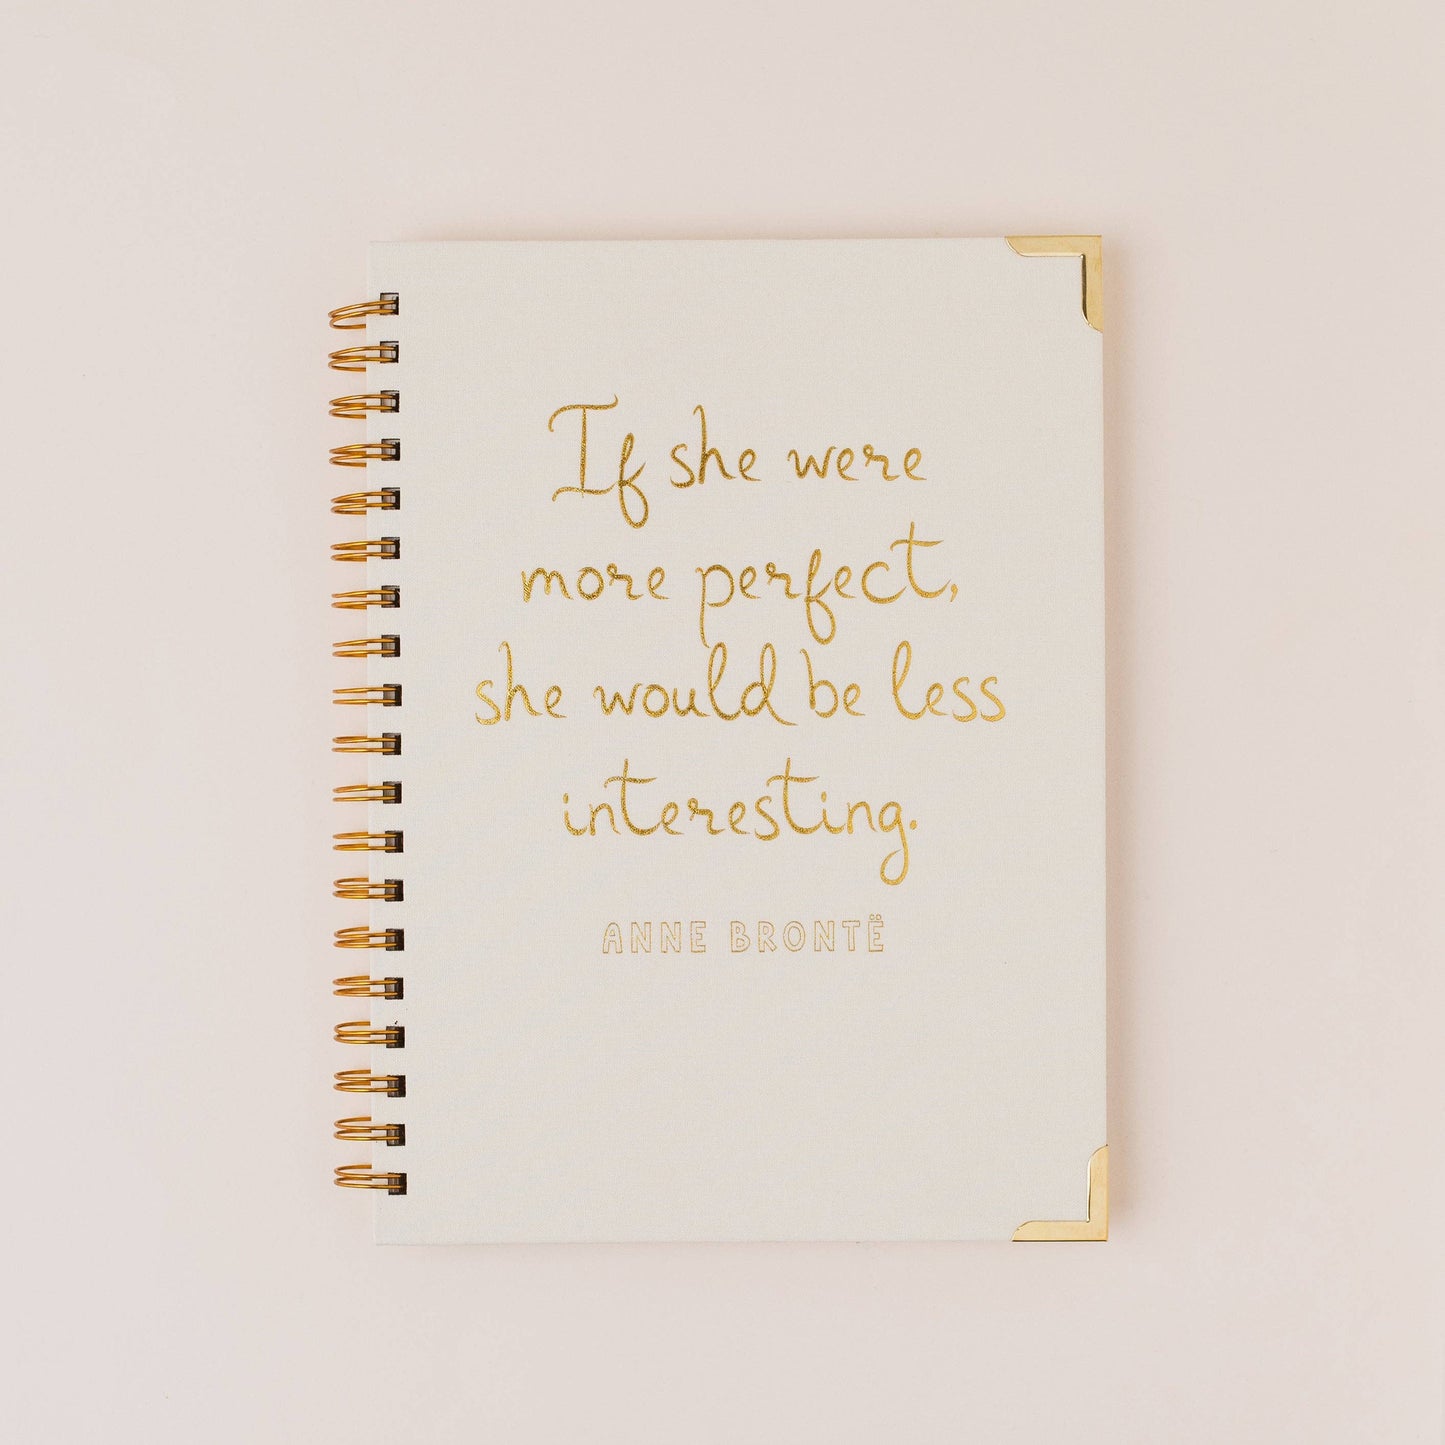 If she were
more perfect,
she would be less
interesting.
ANNE BRONTË